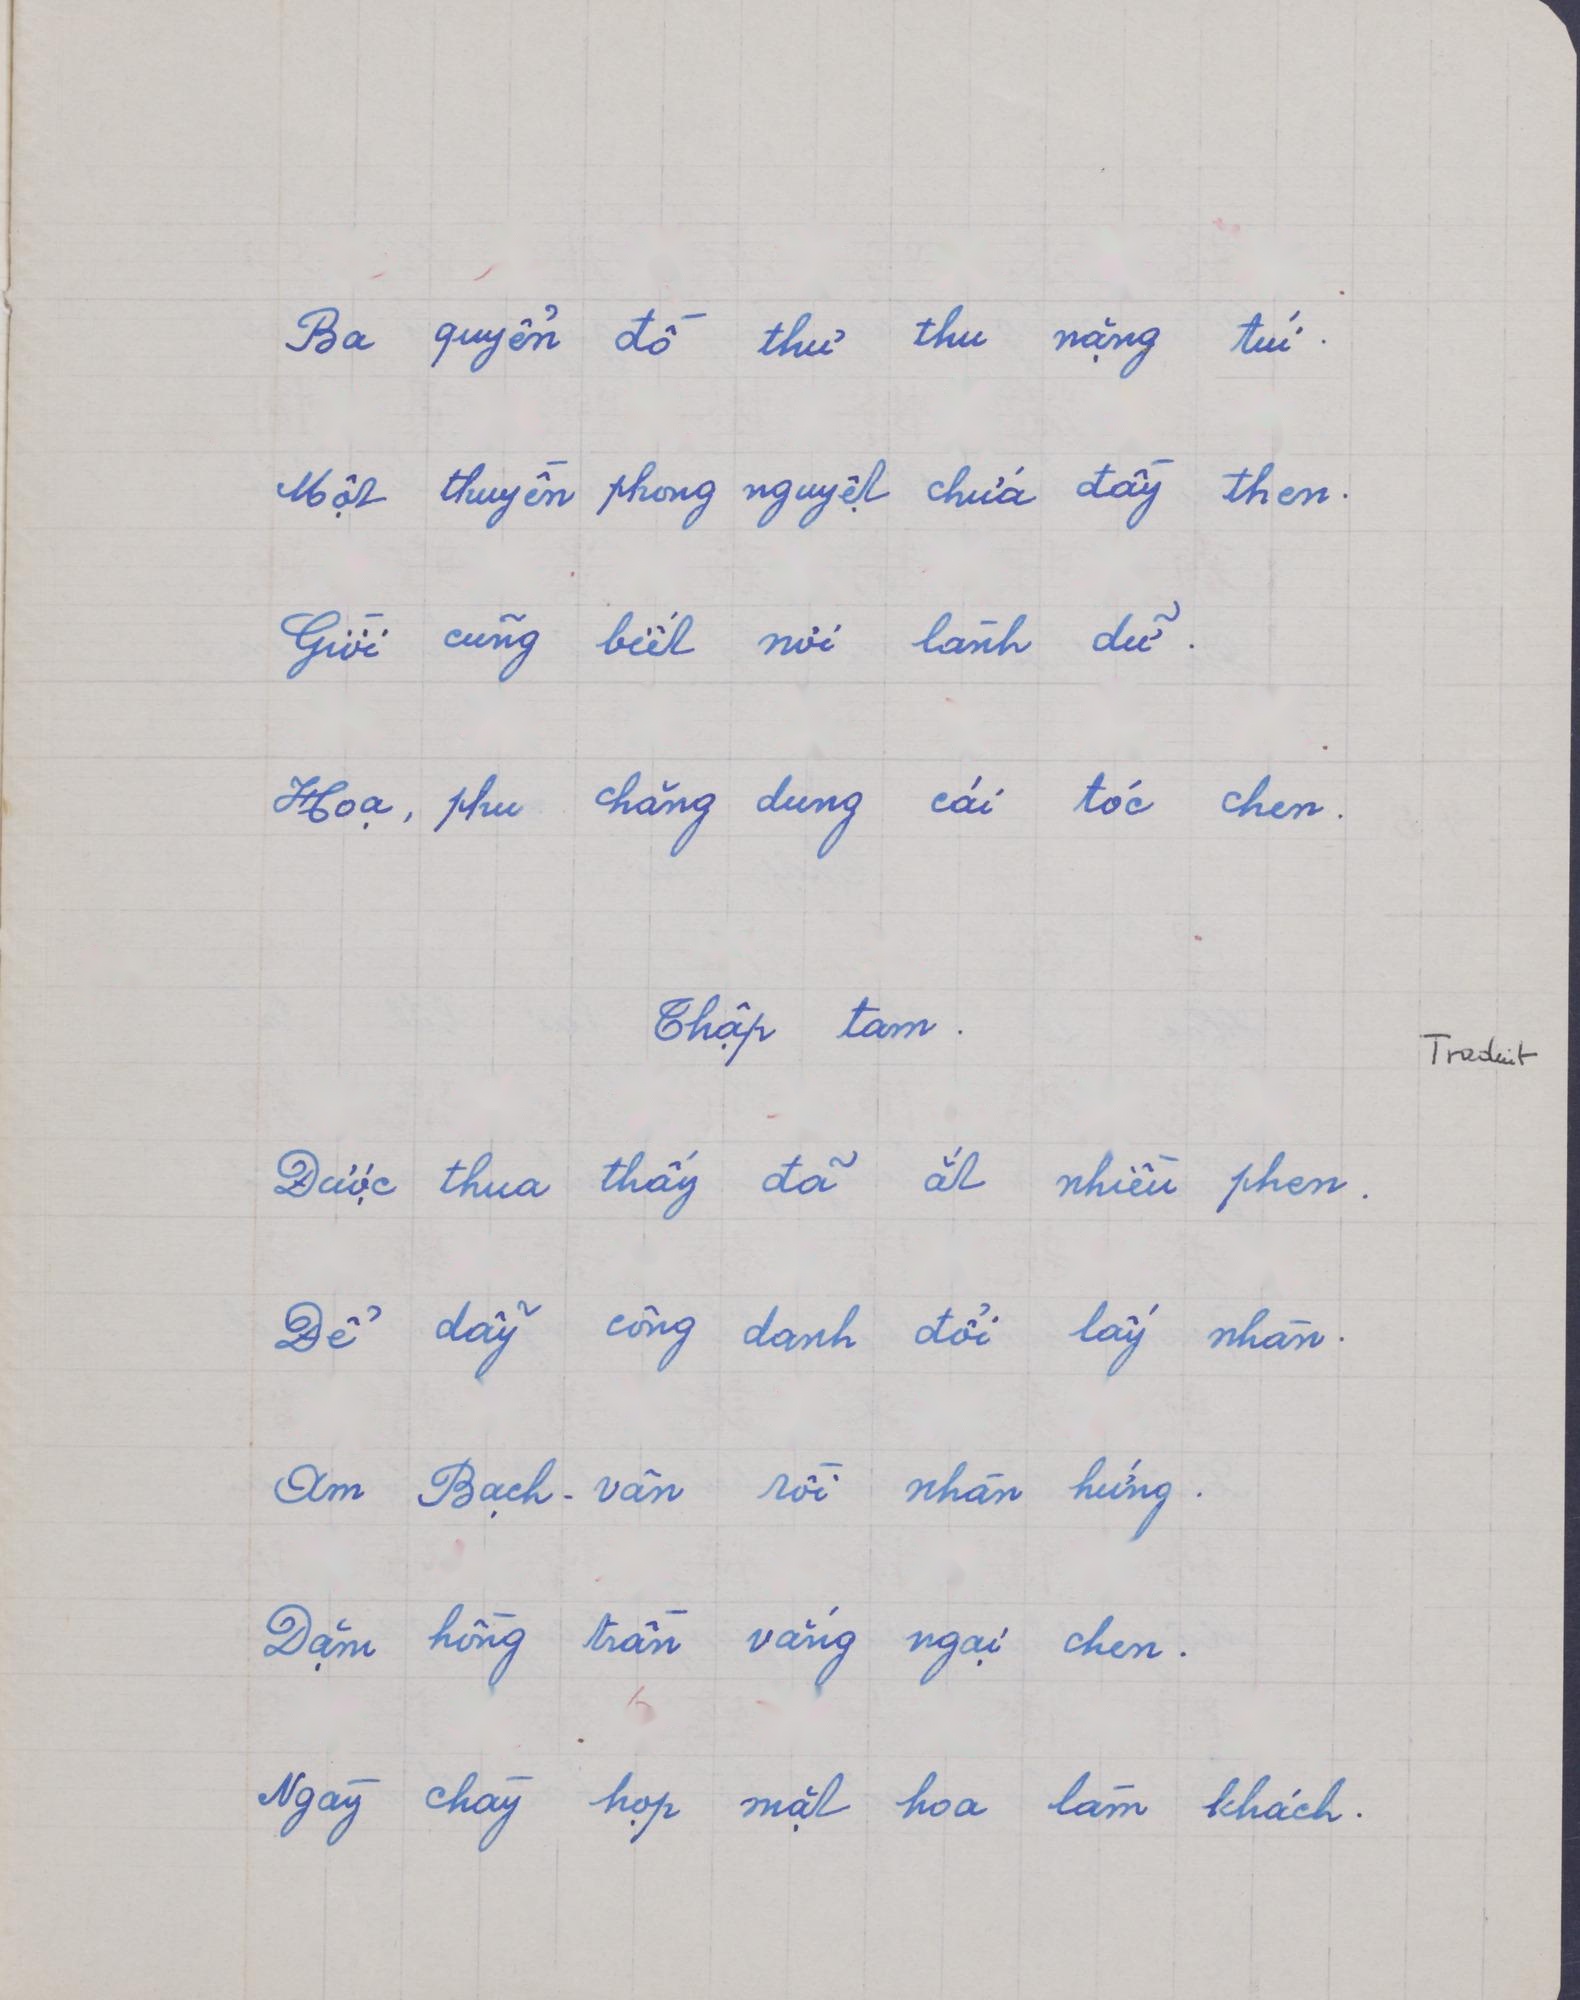 Ba quyển đồ thư thu nặng túi.
Một thuyền phong nguyệt chứa đầy then.
Giời cũng biết nơi lành dữ.
Hoạ, phu chăng dung cái tóc chen.
Thập tam.
Traduit
Được thua thấy đã ắt nhiều phen.
Để dẫy công danh đổi lấy nhàn.
Am Bạch-vân rồi nhàn hứng.
Dặm hồng trần vắng ngại chen.
Ngày chày họp mặt hoa làm khách.